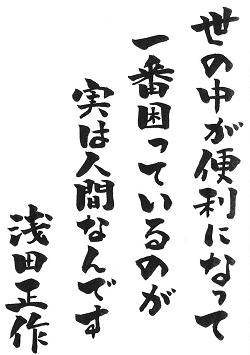 世の中が便利になって
一番困っているのが
実は人間なんです
浅田正作